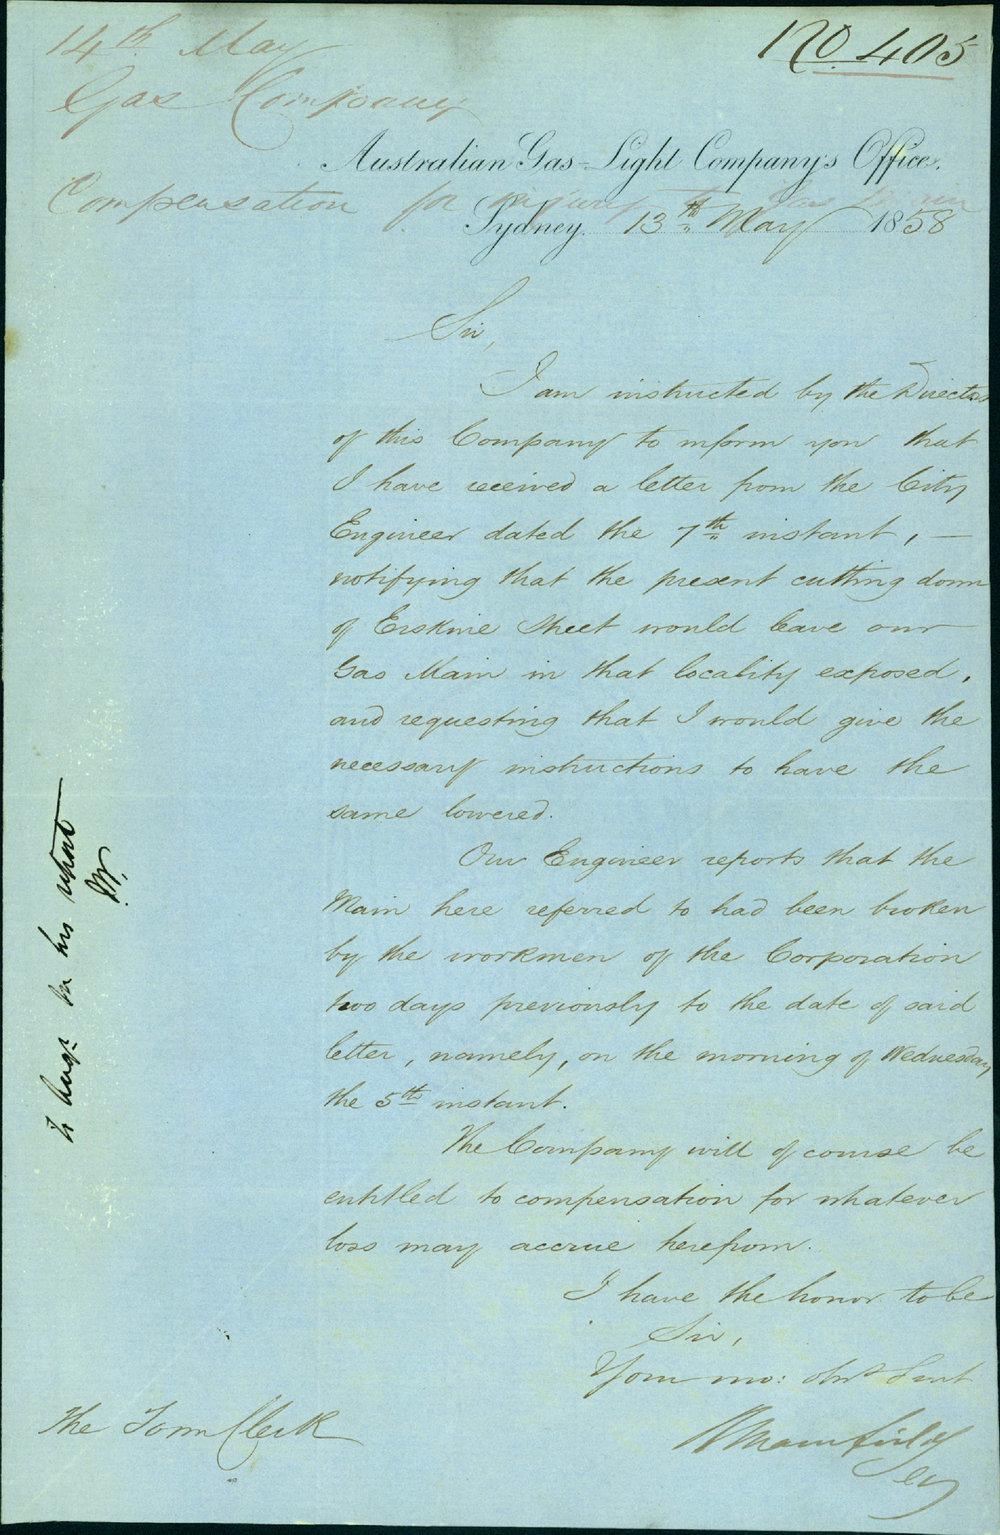 14th May
No. 405
Gas Company
Australian Gas-Light Company's Office.
Compensation for injury to Gas Main
Sydney 13th May 1858
Sir,
I am instructed by the Directors
of this Company to inform you that
I have received a letter from the City
Engineer dated the 7th instant, —
notifying that the present cutting down
of Erskine Street would leave our
Gas Main in that locality exposed,
and requesting that I would give the
necessary instructions to have the
same lowered.
Our Engineer reports that the
Main here referred to had been broken
by the workmen of the Corporation
two days previously to the date of said
letter, namely, on the morning of Wednesday
the 5th instant.
The Company will of course be
entitled to compensation for whatever
loss may accrue herefrom.
I have the honor to be
Sir,
Your mo: obt Servt
The Town Clerk
for his report